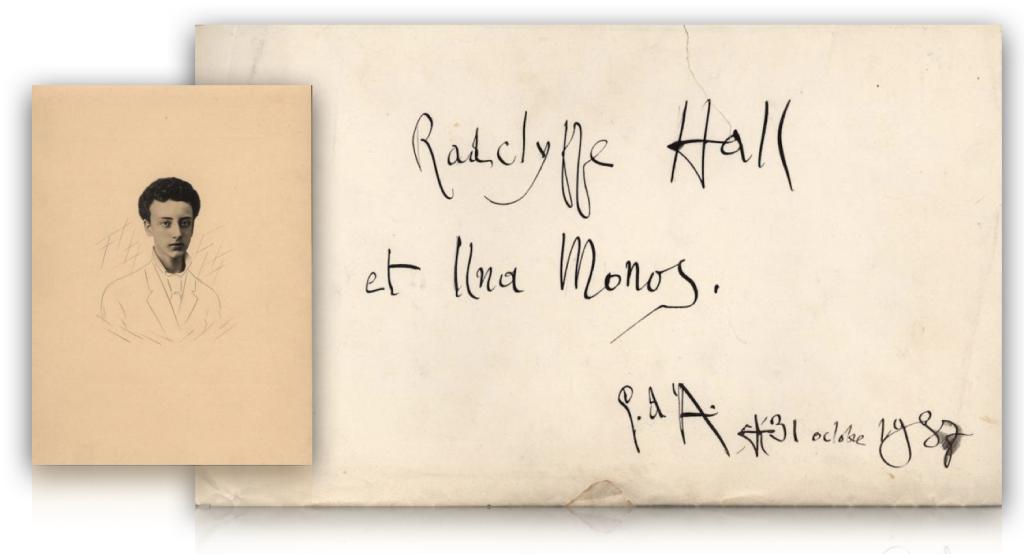 Radclyffe Hall
et Una Monos.
G. d'A. 31 octobre 1937